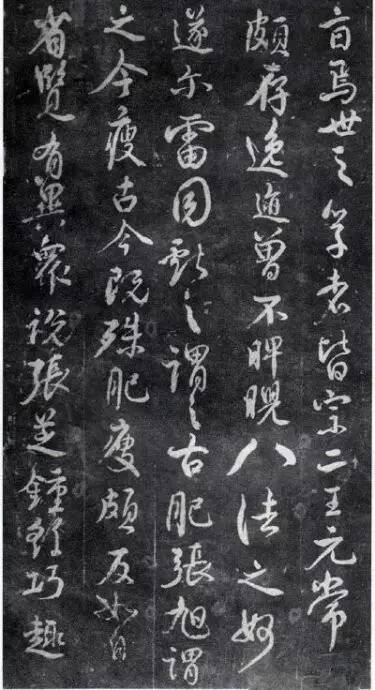 旨焉世之學者皆宗二王元常
頗存逸迹曾不睥睨八法之妙
遂尔雷同獻之謂之古肥張旭謂
之今瘦古今既殊肥瘦頗反如自
省覽有異衆說張芝鍾繇巧趣